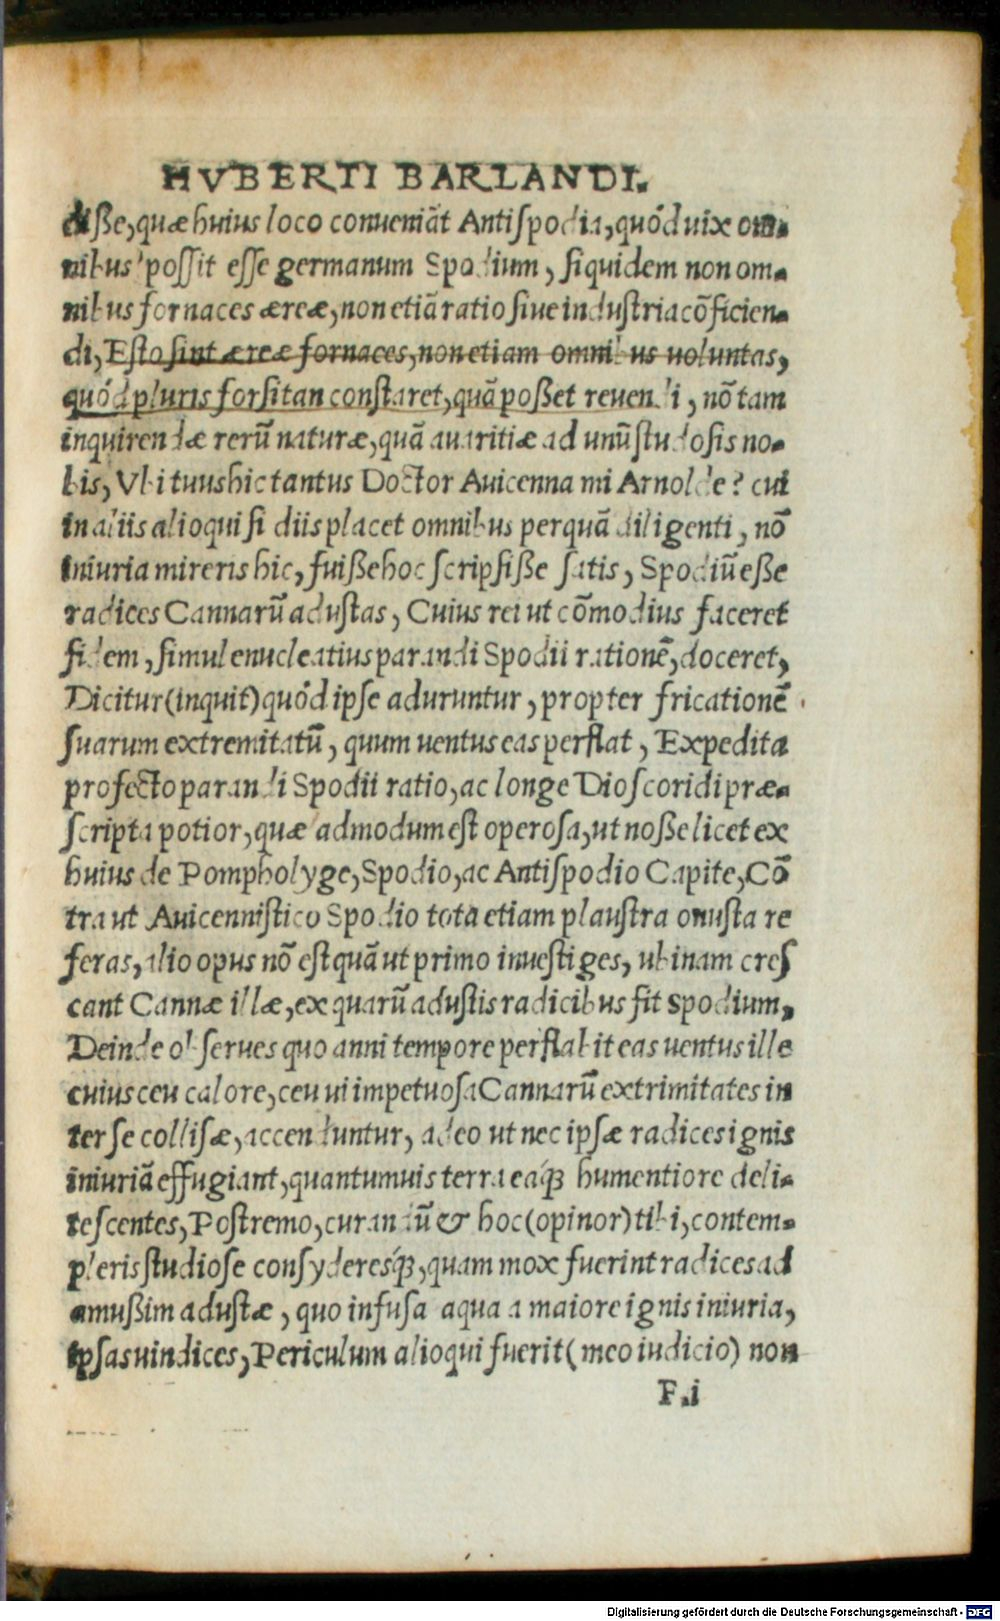 HVBERTI BARLANDI.
disse, quæ huius loco conueniāt Antispodia, quód uix om-
nibus possit esse germanum Spodium, siquidem non om-
nibus fornaces æreæ, non etiā ratio siue industria cōficien-
di, Esto sint æreæ fornaces, non etiam omnibus uoluntas,
quód pluris forsitan constaret, quā posset reuendi, nō tam
inquirendæ rerū naturæ, quā auaritiæ ad unū studosis no-
bis, Vbi tuus hic tantus Doctor Auicenna mi Arnolde? cui
in aliis alioqui si diis placet omnibus perquā diligenti, nō
iniuria mireris hic, fuisse hoc scripsisse satis, Spodiū esse
radices Cannarū adustas, Cuius rei ut cōmodius faceret
fidem, simul enucleatius parandi Spodii rationē, doceret,
Dicitur (inquit) quód ipse aduruntur, propter fricationē
suarum extremitatū, quum uentus eas perflat, Expedita
profecto parandi Spodii ratio, ac longe Dioscoridi præ-
scripta potior, quæ admodum est operosa, ut nosse licet ex
huius de Pompholyge, Spodio, ac Antispodio Capite, Cō
tra ut Auicennistico Spodio tota etiam plaustra onusta re
feras, alio opus nō est quā ut primo inuestiges, ubinam cres
cant Cannæ illæ, ex quarū adustis radicibus fit Spodium,
Deinde obserues quo anni tempore perflabit eas uentus ille
cuius ceu calore, ceu ui impetuosa Cannarū extrimitates in
ter se collisæ, accenduntur, adeo ut nec ipsæ radices ignis
iniuriā effugiant, quantumuis terra eáq; humentiore deli-
tescentes, Postremo, curandū & hoc (opinor) tibi, contem-
pleris studiose consyderesq́;, quam mox fuerint radices ad
amussim adustæ, quo infusa aqua a maiore ignis iniuria,
ipsas uindices, Periculum alioqui fuerit (meo iudicio) non
F.i
Digitalisierung gefördert durch die Deutsche Forschungsgemeinschaft - DFG